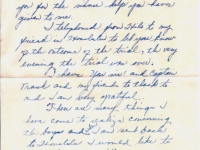 you for the sincere help you have
given to me.
I telephoned from Hilo to my
friend in Honolulu to let you know
of the outcome of the trial, the very
evening the trial was over.
I have you and Captain
and my friends to thank to
and I am very grateful.
There are many things I
have come to realize concerning
the boys and I am sent back
to Honolulu I would like to